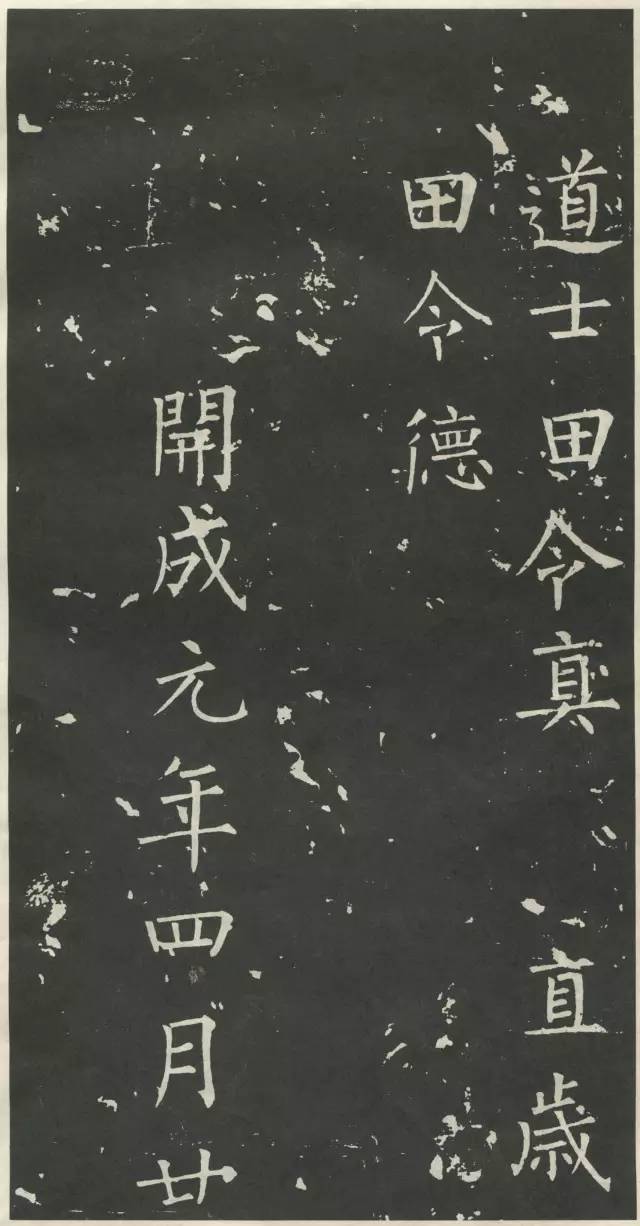 道士田令真 直歲
田令德
開成元年四月廿